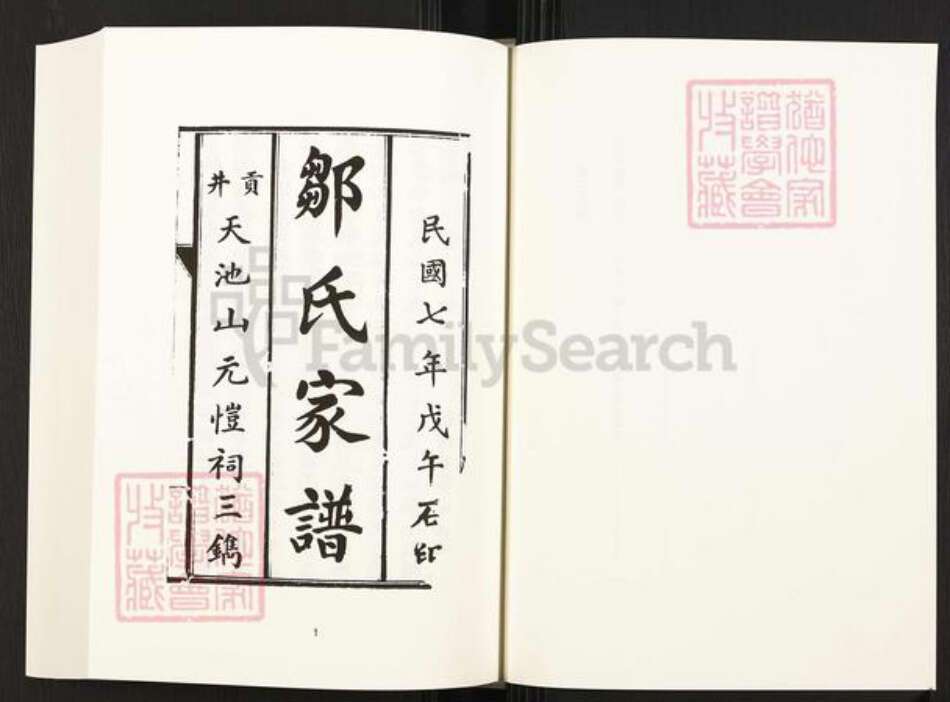 民國七年戊午石印
鄒氏家譜
貢井天池山元愷祠三鐫
1
猶他家譜學會收藏
猶他家譜學會收藏
FamilySearch